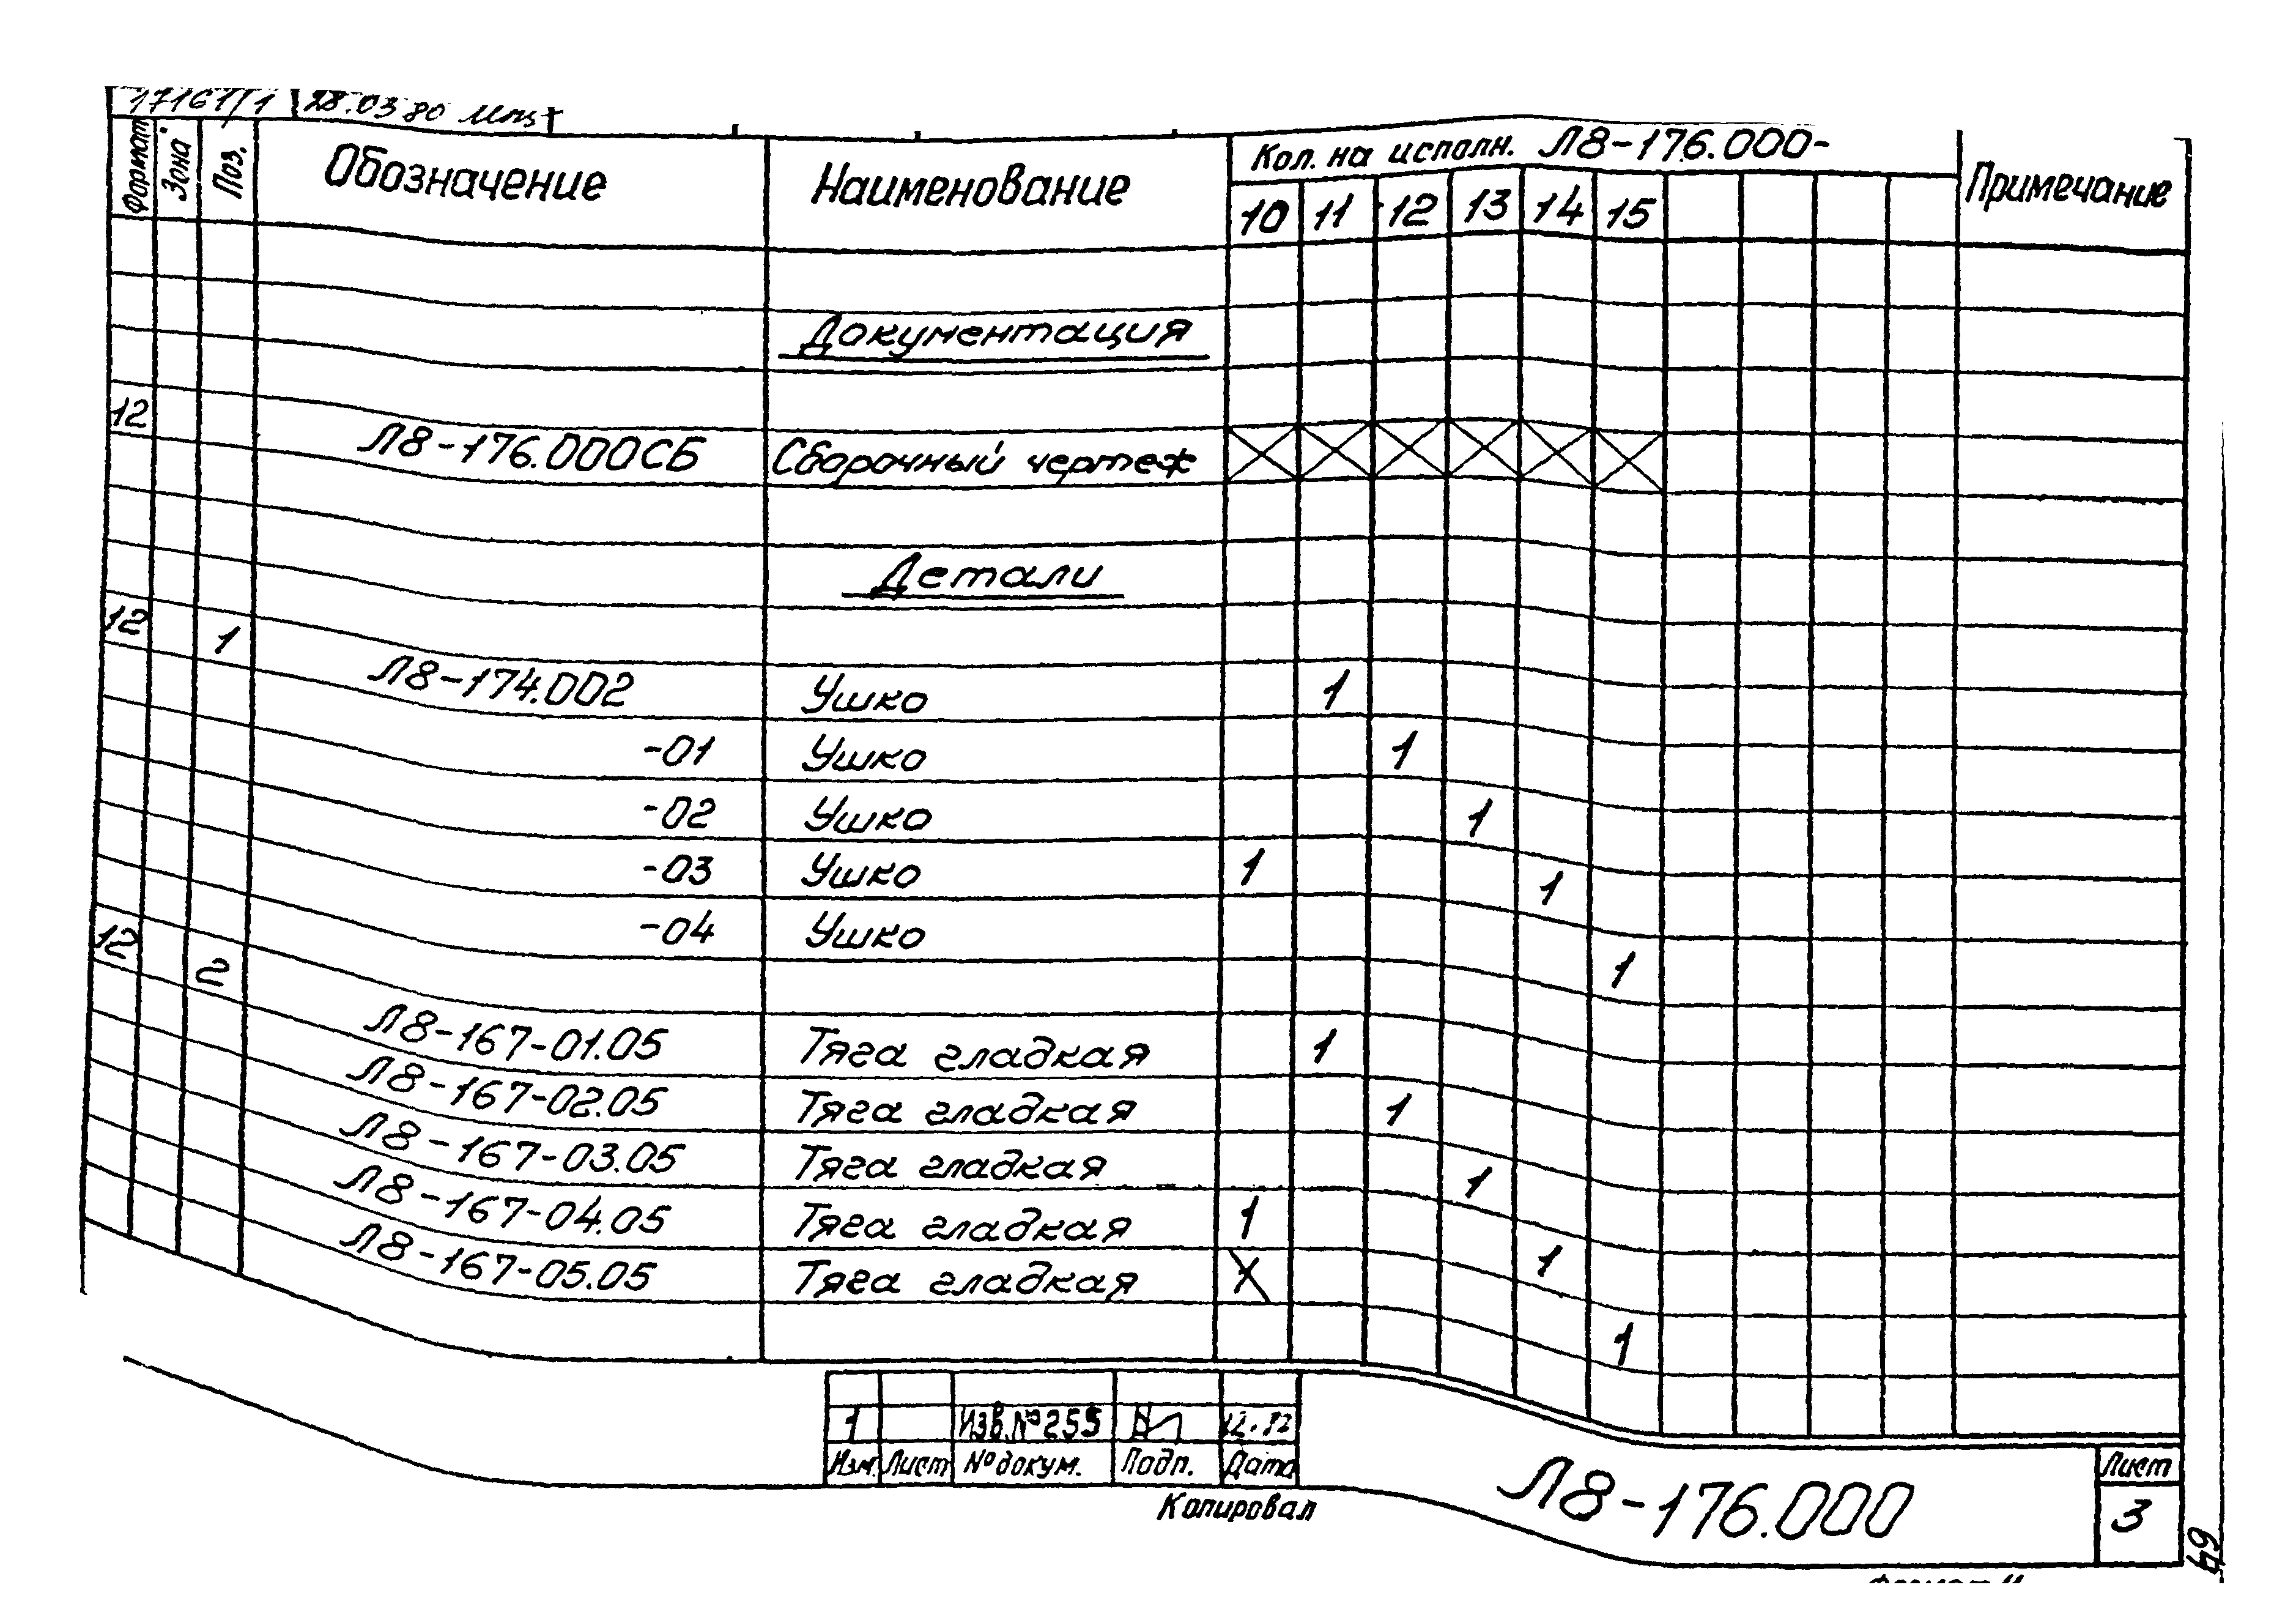 17161/1 28.03.80
Формат Зона Поз. Обозначение Наименование Кол. на исполн. Л8-176.000- Примечание
10 11 12 13 14 15
Документация
12 Л8-176.000СБ Сборочный чертеж
Детали
12 1 Л8-174.002 Ушко 1
-01 Ушко 1
-02 Ушко 1
-03 Ушко 1 1
-04 Ушко 1
12 2 Л8-167-01.05 Тяга гладкая 1
Л8-167-02.05 Тяга гладкая 1
Л8-167-03.05 Тяга гладкая 1
Л8-167-04.05 Тяга гладкая 1 1
Л8-167-05.05 Тяга гладкая X 1
1 Изв.№255 12.82
Изм. Лист № докум. Подп. Дата
Копировал
Л8-176.000
Лист
3
69